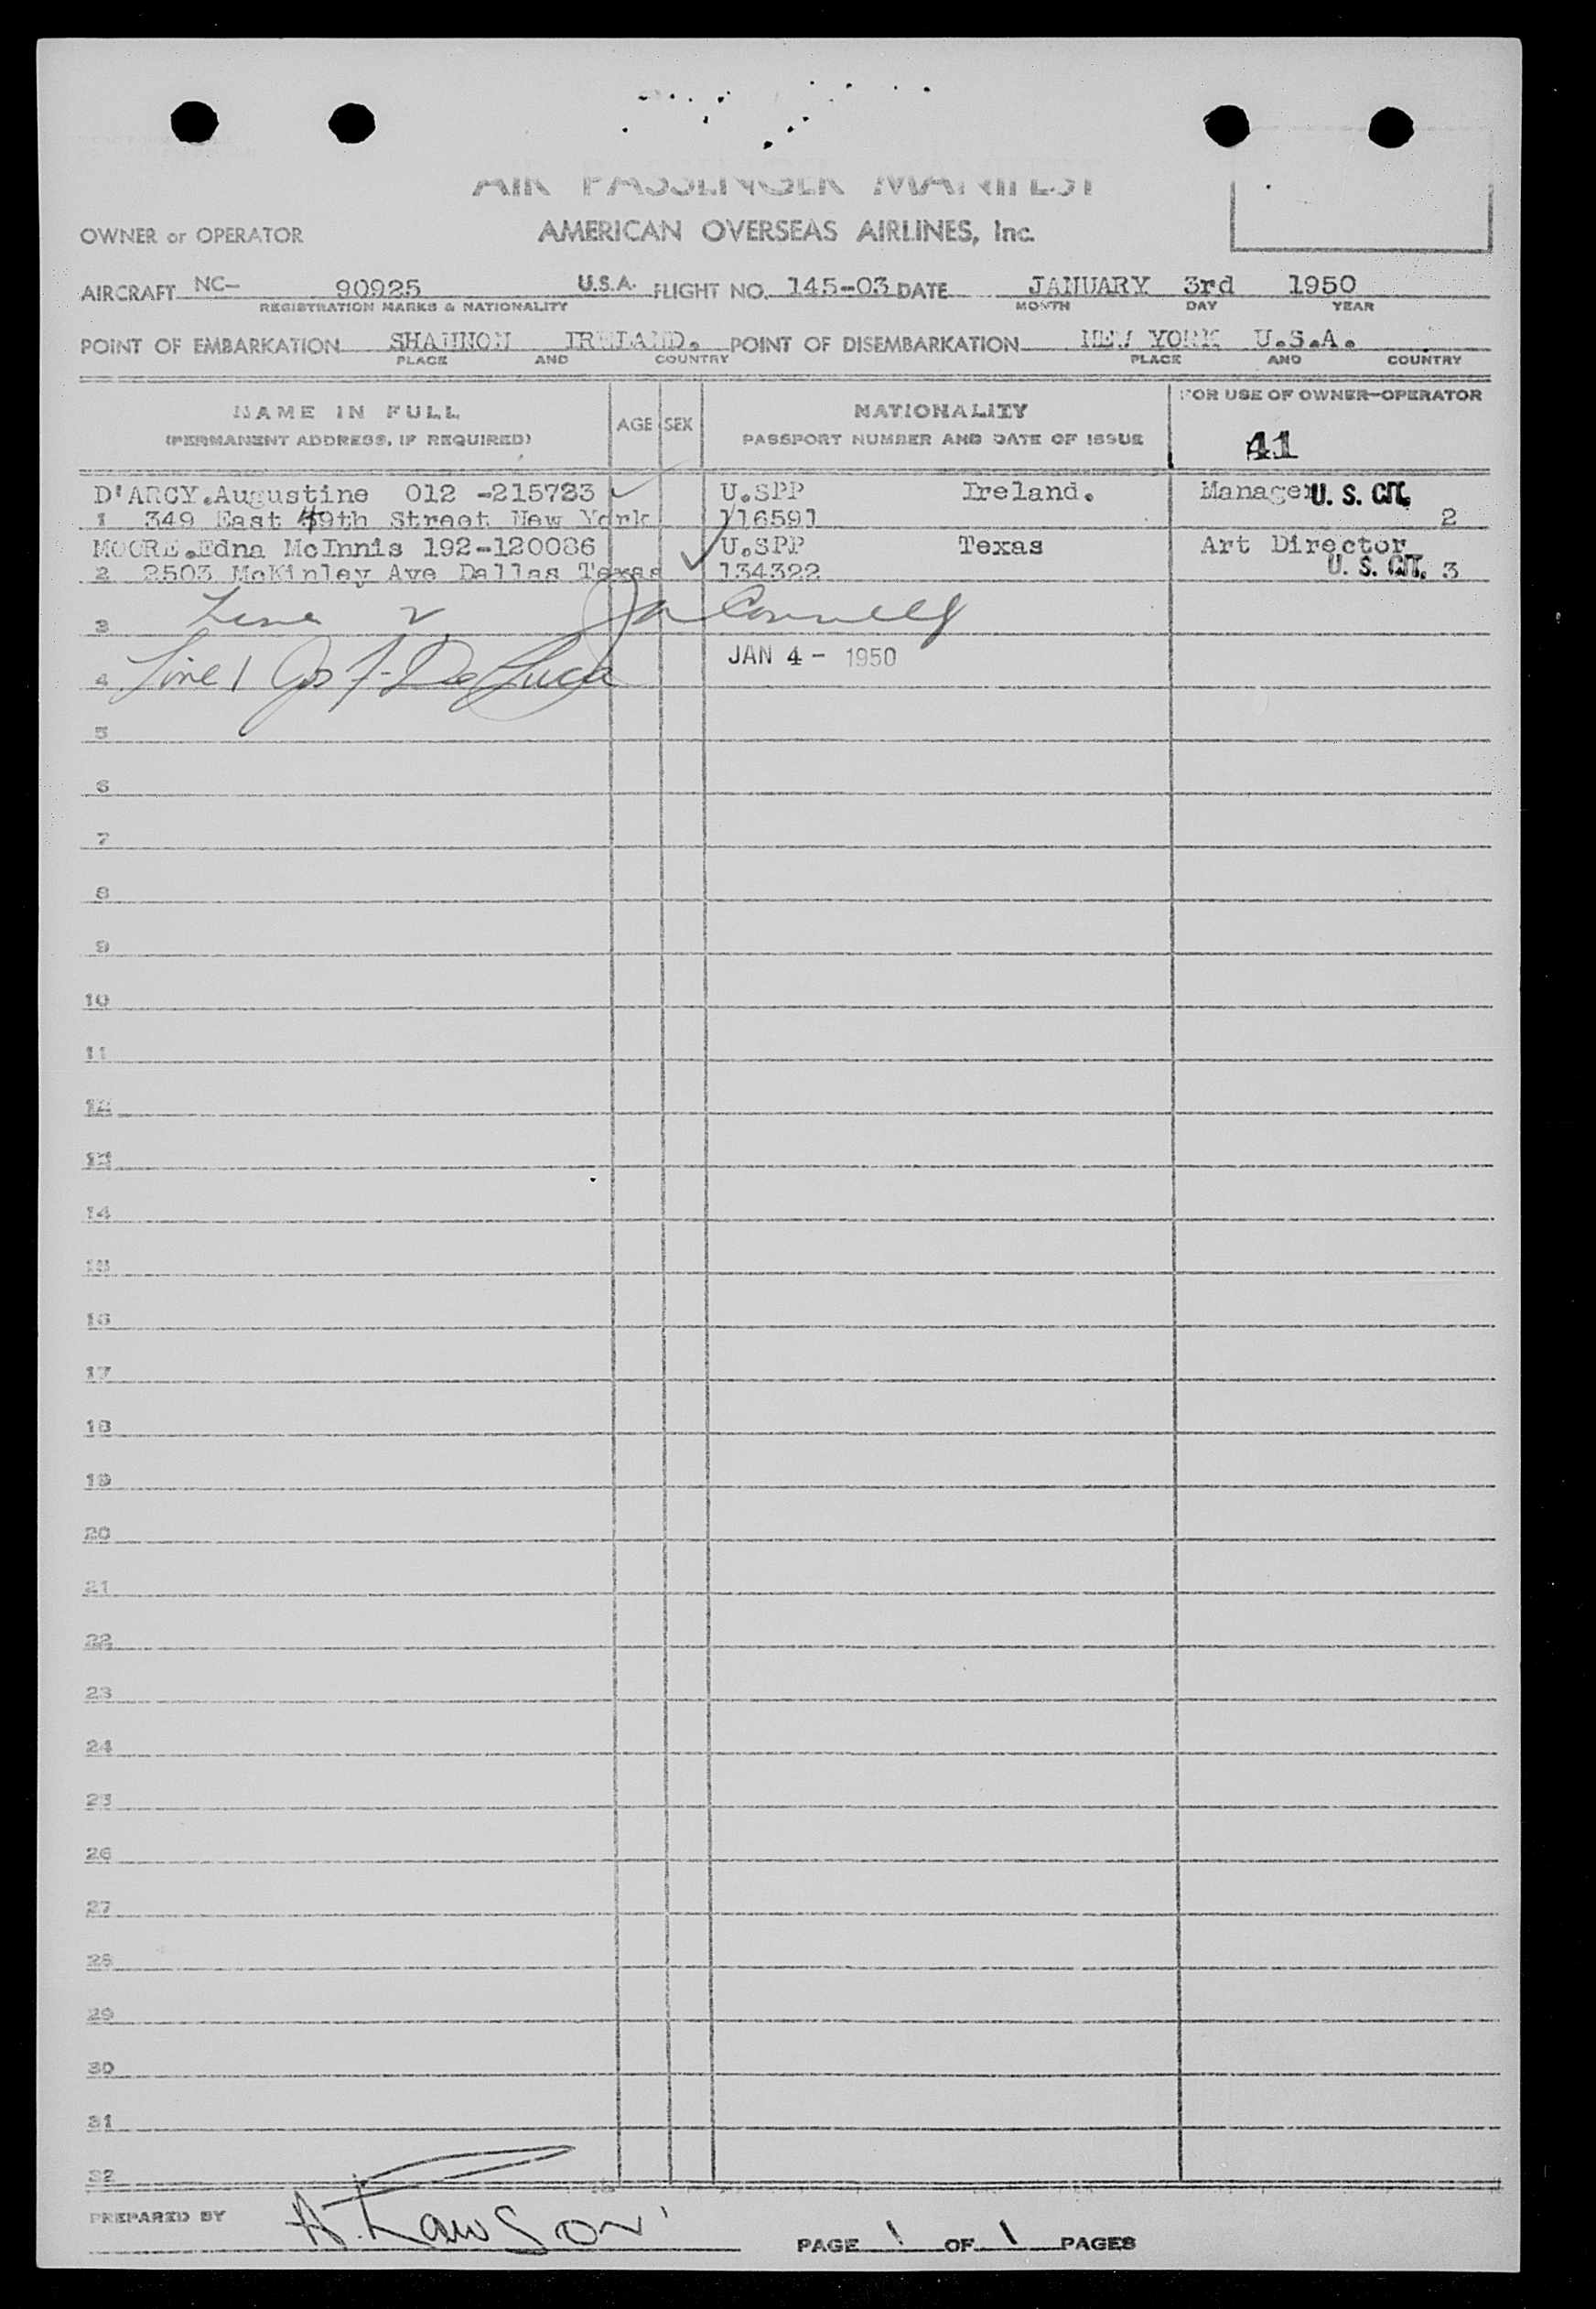 AIR PASSENGER MANIFEST
OWNER or OPERATOR AMERICAN OVERSEAS AIRLINES, Inc.
AIRCRAFT NC- 90925 U.S.A. FLIGHT NO. 145-03 DATE JANUARY 3rd 1950
REGISTRATION MARKS & NATIONALITY MONTH DAY YEAR
POINT OF EMBARKATION SHANNON IRELAND. POINT OF DISEMBARKATION NEW YORK U.S.A.
PLACE AND COUNTRY PLACE AND COUNTRY
NAME IN FULL AGE SEX NATIONALITY FOR USE OF OWNER-OPERATOR
(PERMANENT ADDRESS, IF REQUIRED) PASSPORT NUMBER AND DATE OF ISSUE 41
D'ARCY.Augustine 012 -215723 U.SPP Ireland. Manager U. S. CIT.
1 349 East 49th Street New York 116591 2
MOORE.Edna McInnis 192-120086 U.SPP Texas Art Director
2 2503 McKinley Ave Dallas Texas 134322 U. S. CIT. 3
3 Line 2
4 Line 1 Jos F. DeLuca JAN 4 - 1950
5
6
7
8
9
10
11
12
13
14
15
16
17
18
19
20
21
22
23
24
25
26
27
28
29
30
31
32
PREPARED BY A. Rawson
PAGE 1 OF 1 PAGES